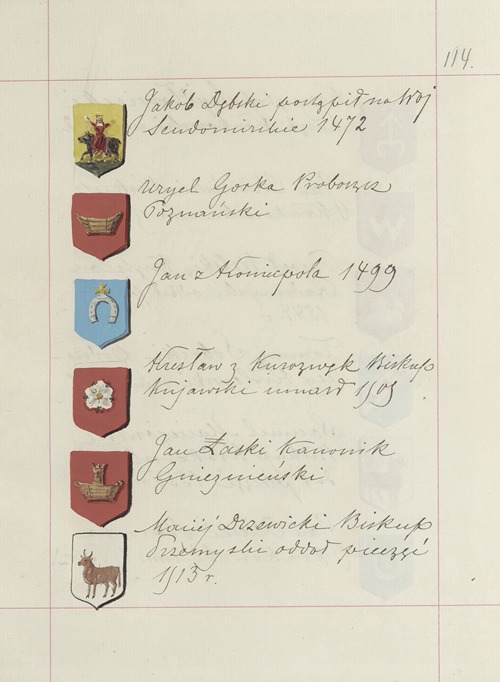 114.
Jakób Dębski postąpił na Woj
Sendomirskie 1472
Uryel Gorka Proboszcz
Poznański
Jan z 1499
Kresław z Kurozwęk Biskup
Kujawski umarł 1503
Jan Łaski Kanonik
Gnieznieński
Maciej Drzewicki Biskup
Przemyslki oddał pieczęć
1513 r.